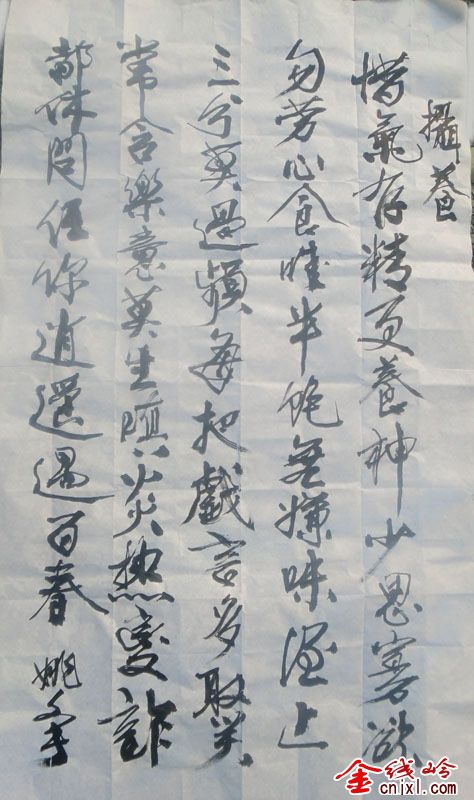 攝養
惜氣存精更養神少思寡欲
勿劳心食惟半飽無嫌味酒止
三分莫過頻每把戲言多取笑
常含樂意莫生嗔炎热变詐
都休問任你逍遥過百春 姚
金线岭
cnjxl.com